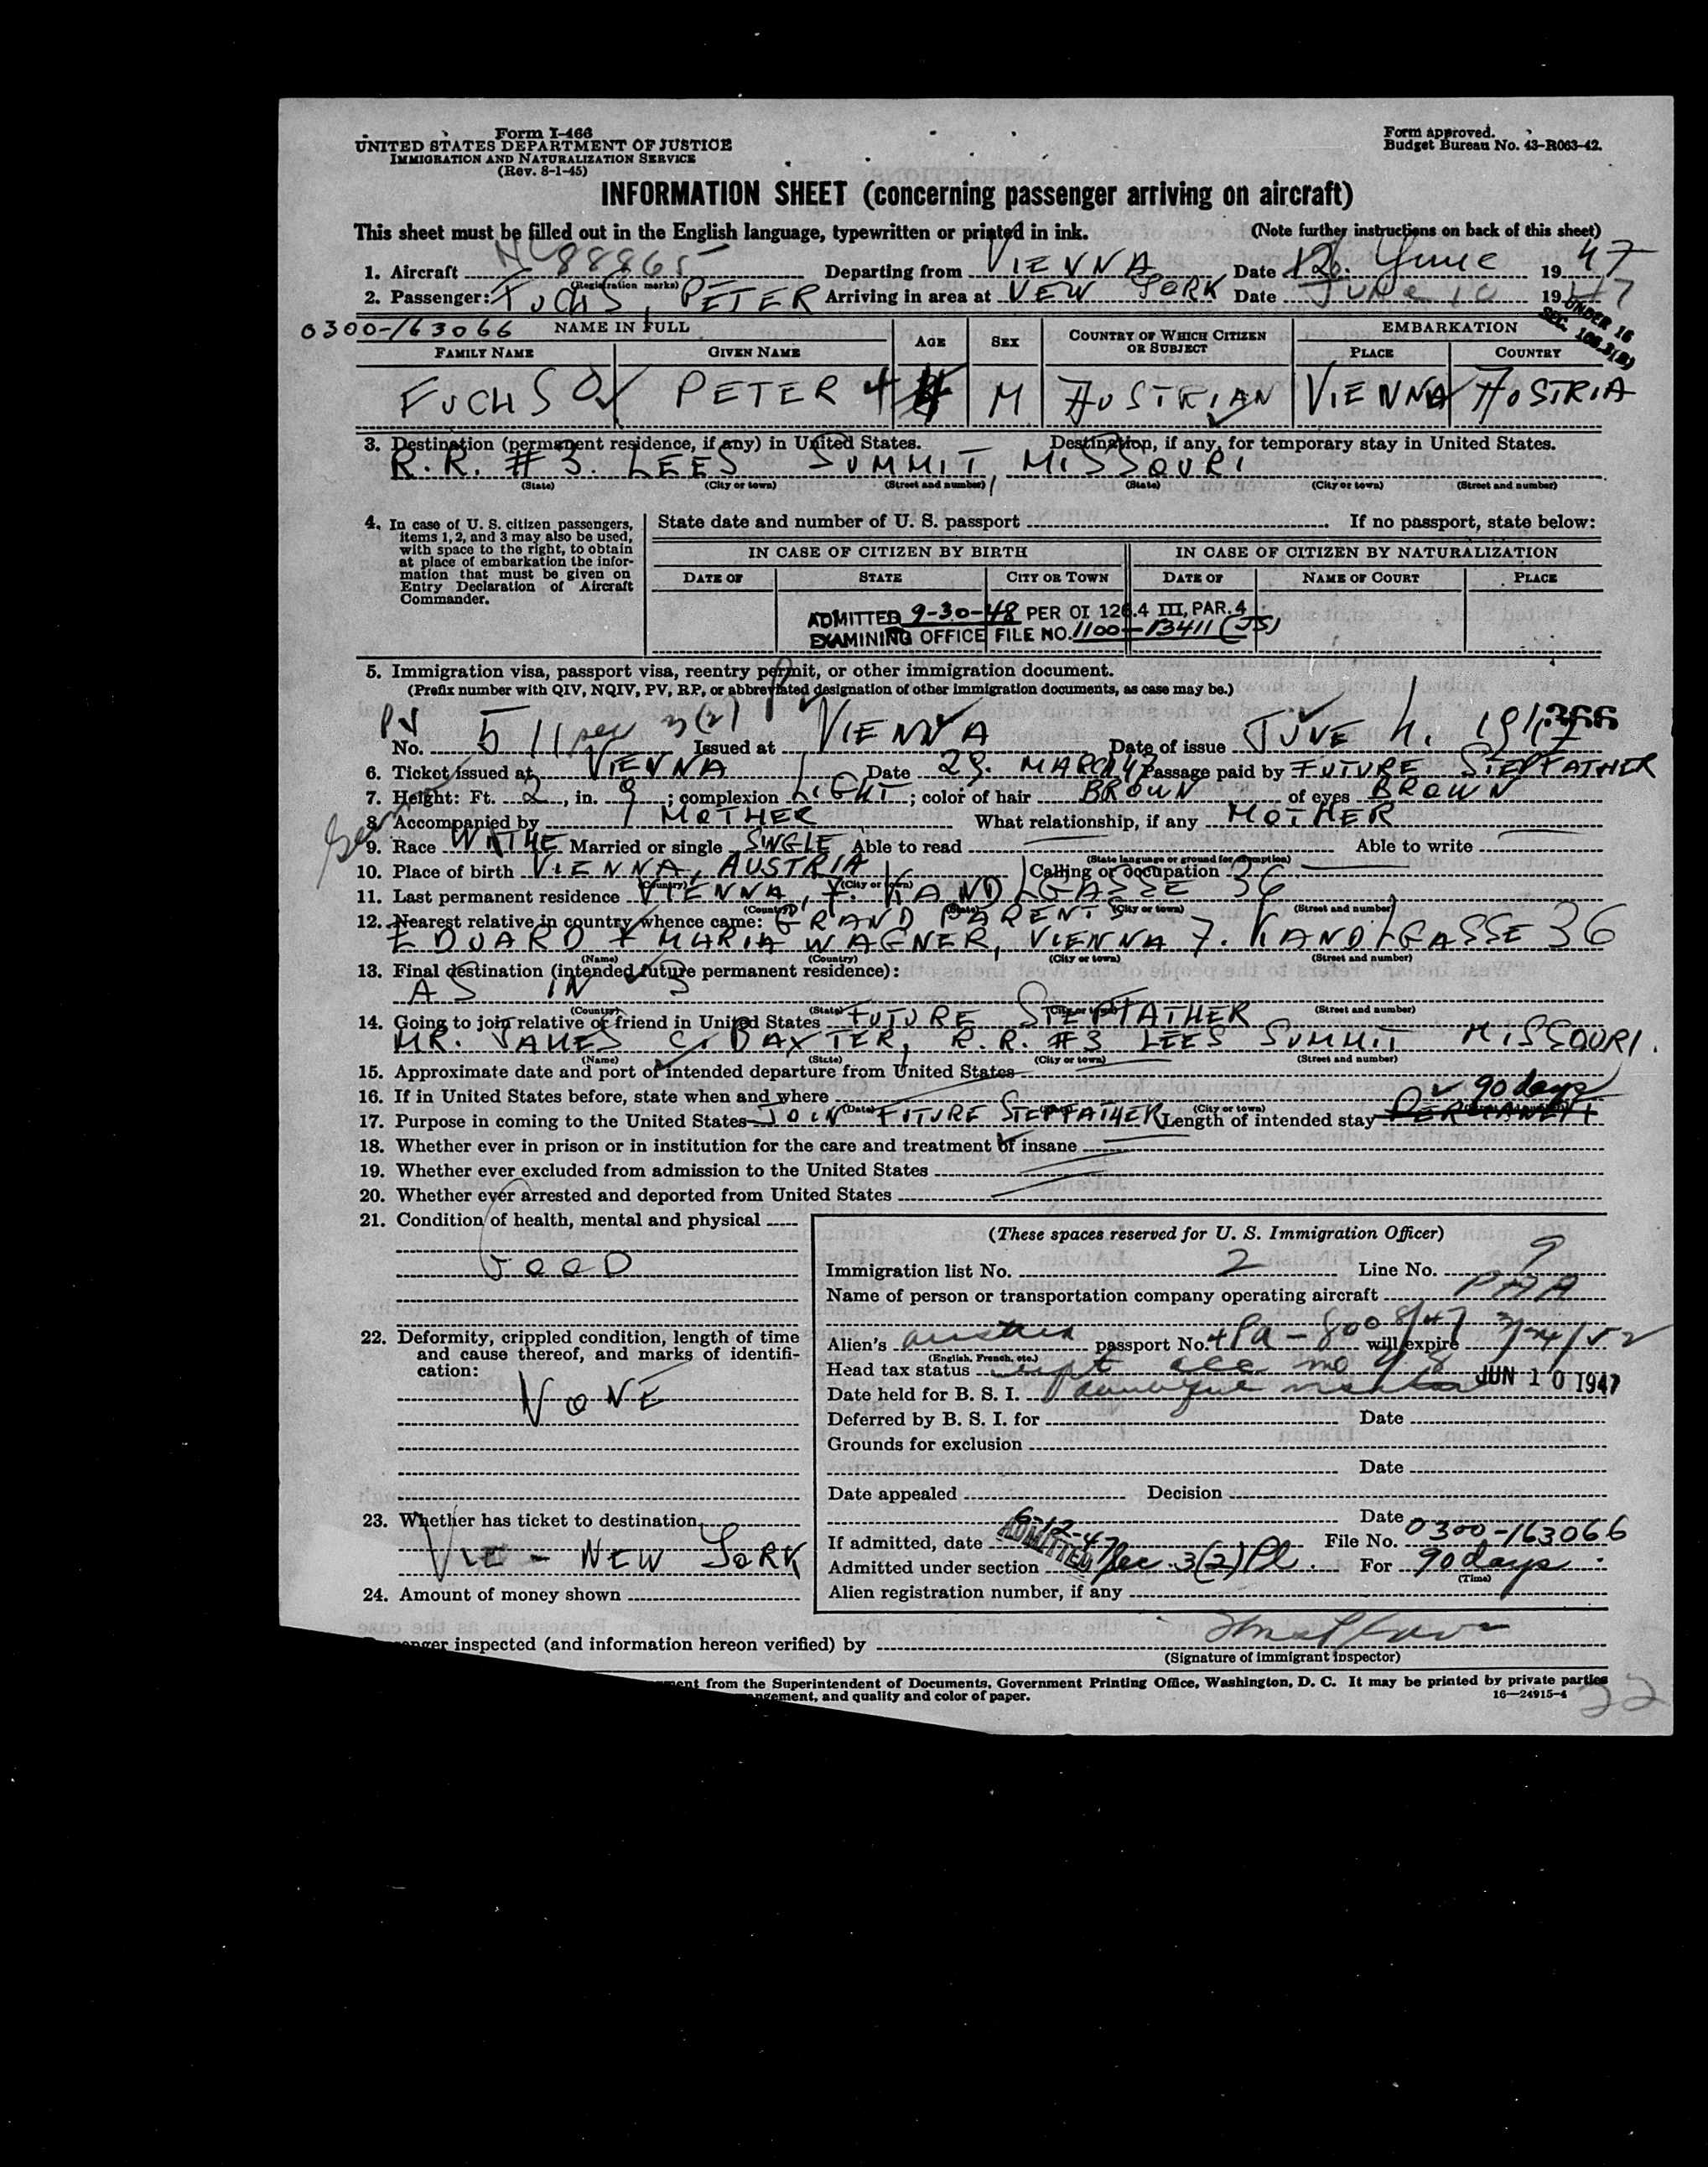 Form I-466
UNITED STATES DEPARTMENT OF JUSTICE
IMMIGRATION AND NATURALIZATION SERVICE
(Rev. 8-1-45)
Form approved.
Budget Bureau No. 43-R063-42.
INFORMATION SHEET (concerning passenger arriving on aircraft)
This sheet must be filled out in the English language, typewritten or printed in ink. (Note further instructions on back of this sheet)
1. Aircraft NC 88865 Departing from VIENNA Date June 1947
(Registration marks)
2. Passenger: FUCHS, PETER Arriving in area at NEW YORK Date JUNE 10 1947
UNDER 16
SEC.
0300-163066 NAME IN FULL AGE SEX COUNTRY OF WHICH CITIZEN OR SUBJECT EMBARKATION
FAMILY NAME GIVEN NAME PLACE COUNTRY
FUCHS PETER 4 M AUSTRIAN VIENNA AUSTRIA
3. Destination (permanent residence, if any) in United States. Destination, if any, for temporary stay in United States.
R.R. #3. LEES SUMMIT, MISSOURI
(State) (City or town) (Street and number) (State) (City or town) (Street and number)
4. In case of U. S. citizen passengers, items 1, 2, and 3 may also be used, with space to the right, to obtain at place of embarkation the information that must be given on Entry Declaration of Aircraft Commander.
State date and number of U. S. passport If no passport, state below:
IN CASE OF CITIZEN BY BIRTH IN CASE OF CITIZEN BY NATURALIZATION
DATE OF STATE CITY OR TOWN DATE OF NAME OF COURT PLACE
ADMITTED 9-30-48 PER OI 126.4 III, PAR. 4
EXAMINING OFFICE FILE NO. 1100-13411 (JS)
5. Immigration visa, passport visa, reentry permit, or other immigration document.
(Prefix number with QIV, NQIV, PV, RP, or abbreviated designation of other immigration documents, as case may be.)
PV
No. 511 sec 3(2) Issued at VIENNA Date of issue JUNE 4. 1947 366
6. Ticket issued at VIENNA Date 29. MARCH 47 Passage paid by FUTURE STEPFATHER
7. Height: Ft. 2, in. 9; complexion LIGHT; color of hair BROWN of eyes BROWN
8. Accompanied by MOTHER What relationship, if any MOTHER
9. Race WHITE Married or single SINGLE Able to read Able to write
(State language or ground for exemption)
10. Place of birth VIENNA, AUSTRIA Calling or occupation
(Country) (City or town)
11. Last permanent residence VIENNA, 7. KANDLGASSE 36
(Country) (State) (City or town) (Street and number)
12. Nearest relative in country whence came: GRAND PARENTS
EDUARD + MARIA WAGNER, VIENNA 7. KANDLGASSE 36
(Name) (Country) (City or town) (Street and number)
13. Final destination (intended future permanent residence):
AS IN 3
(Country) (State) (City or town) (Street and number)
14. Going to join relative or friend in United States FUTURE STEPFATHER
MR. JAMES C. BAXTER, R.R. #3 LEES SUMMIT MISSOURI.
(Name) (State) (City or town) (Street and number)
15. Approximate date and port of intended departure from United States
16. If in United States before, state when and where
(Date) (City or town)
90 days
17. Purpose in coming to the United States JOIN FUTURE STEPFATHER Length of intended stay PERMANENT
18. Whether ever in prison or in institution for the care and treatment of insane
19. Whether ever excluded from admission to the United States
20. Whether ever arrested and deported from United States
21. Condition of health, mental and physical
GOOD
22. Deformity, crippled condition, length of time and cause thereof, and marks of identification:
NONE
23. Whether has ticket to destination
VIE - NEW YORK
24. Amount of money shown
(These spaces reserved for U. S. Immigration Officer)
Immigration list No. 2 Line No. 9
Name of person or transportation company operating aircraft PAA
Alien's Austria passport No. will expire 3/24/52
(English, French, etc.)
Head tax status
Date held for B. S. I. JUN 10 1947
Deferred by B. S. I. for Date
Grounds for exclusion
Date
Date appealed Decision
Date
If admitted, date 6-12-47 ADMITTED File No. 0300-163066
Admitted under section Sec 3(2) Pl. For 90 days
(Time)
Alien registration number, if any
inspected (and information hereon verified) by
(Signature of immigrant inspector)
from the Superintendent of Documents, Government Printing Office, Washington, D. C. It may be printed by private parties
and quality and color of paper.
16—24915-4
22